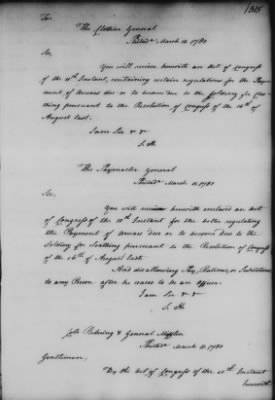 185
To
The Clothier General
Philada March 12. 1781
Sir,
You will receive herewith an Act of Congress
of the 10th Instant, containing certain regulations for the Pay-
ment of Arrears due or to become due to the Soldiery for Cloa-
thing pursuant to the Resolution of Congress of the 16th of
August last.
I am Sir &c &c
S. H.
The Paymaster General
Philada March 12. 1781
Sir,
You will receive herewith enclosed an Act
of Congress of the 10th Instant for the better regulating
the Payment of Arrears due or to become due to the
Soldiery for Cloathing pursuant to the Resolution of Congress
of the 16th of August last.
And disallowing Pay, Rations, or Subsistence
to any Person after he ceases to be an Officer.
I am Sir &c &c
S. H.
Colo Pickering & General Mifflin
Philada March 12. 1781
Gentlemen,
By the Act of Congress of the 10th Instant
herewith